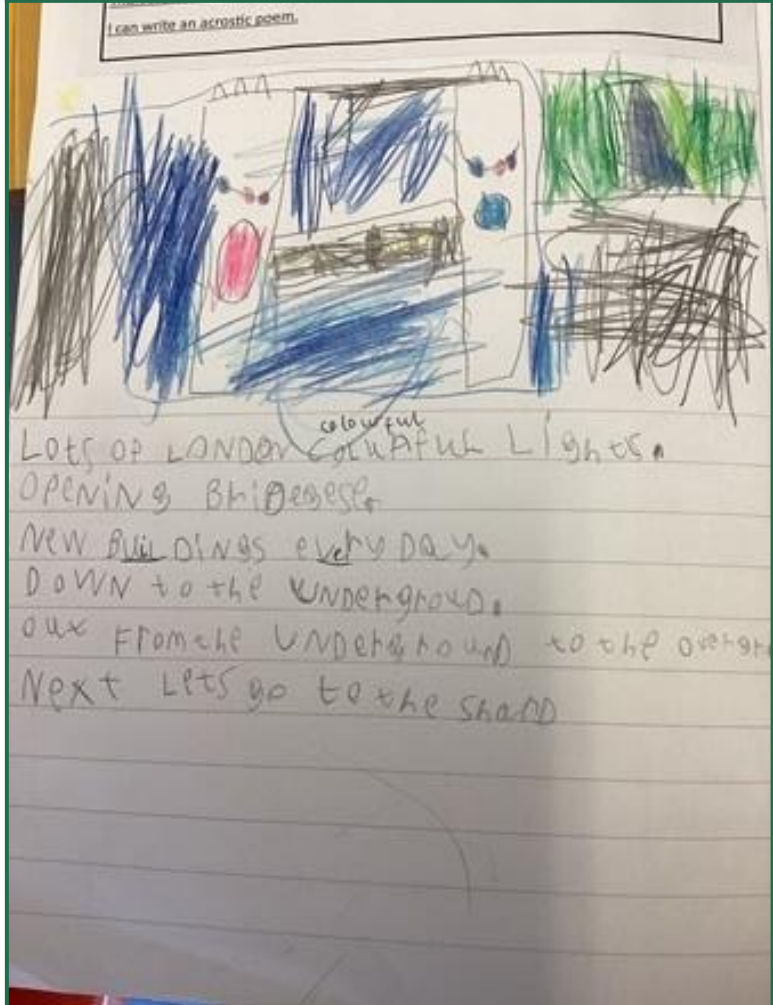 I can write an acrostic poem.
colourful
Lots of LONDON Colurful Lights.
OPENING BriDegese.
New BuilDiNgs every Day.
DOWN to the UNDergrouD.
Out From the UNDerground to the overgr
Next Lets go to the sharD